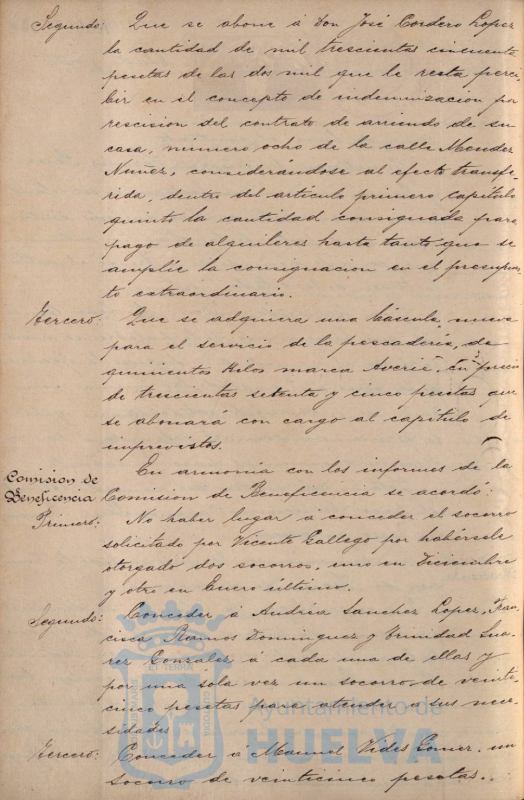 Segundo: Que se abone á Don José Cordero Lopez
la cantidad de mil trescientas cincuenta
pesetas de las dos mil que le resta perci-
bir en el concepto de indemnizacion por
rescision del contrato de arriendo de su
casa, número ocho de la calle Mendez
Nuñez, considerándose al efecto transfe-
rida, dentro del artículo primero capítulo
quinto la cantidad consignada para
pago de alquileres hasta tanto que se
amplíe la consignacion en el presupues-
to extraordinario.
Tercero: Que se adquiera una báscula nueva
para el servicio de la pescadería, de
quinientos Kilos marca Averié, su precio
de trescientas setenta y cinco pesetas que
se abonará con cargo al capítulo de
imprevistos.
Comision de
Beneficencia
En armonía con los informes de la
Comision de Beneficencia se acordó:
Primero: No haber lugar á conceder el socorro
solicitado por Vicente Gallego por habérsele
otorgado dos socorros, uno en Diciembre
y otro en Enero último.
Segundo: Conceder á Andréa Sanchez Lopez, Fran-
cisca Ramos Dominguez y Trinidad Sua-
rez Gonzalez á cada una de ellas y
por una sola vez un socorro de veinti-
cinco pesetas para atender a sus nece-
sidades
Tercero: Conceder á Manuel Vides Gomez un
socorro de veinticinco pesetas.
Ayuntamiento de
HUELVA